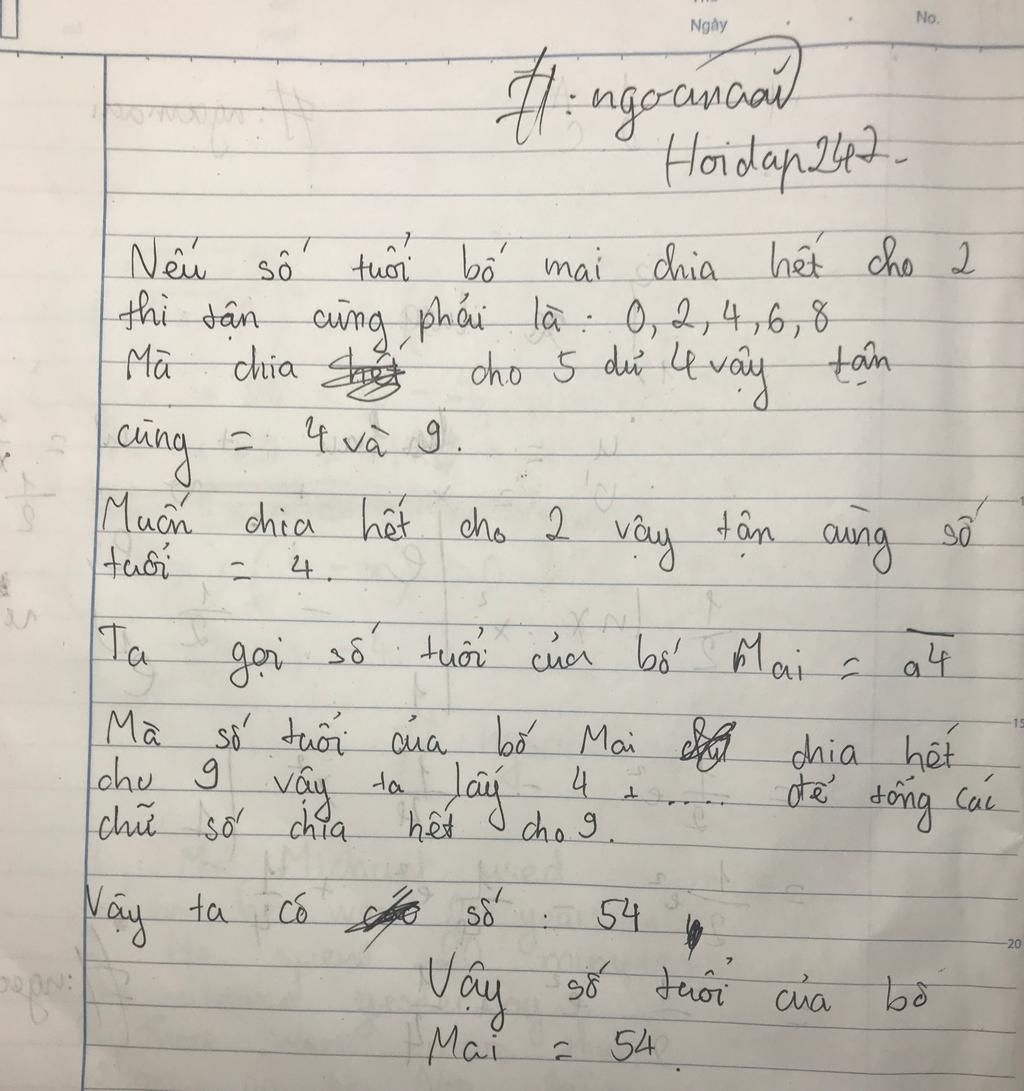 Ngày
No.
#: ngoanaai
Hoidap247-
Nếu số tuổi bố mai chia hết cho 2
thì tận cùng phải là: 0, 2, 4, 6, 8
Mà chia cho 5 dư 4 vậy tận
cùng = 4 và 9.
Muốn chia hết cho 2 vậy tận cùng số
tuổi = 4.
Ta gọi số tuổi của bố Mai = a4
Mà số tuổi của bố Mai chia hết
cho 9 vậy ta lấy 4 + ..... để tổng các
chữ số chia hết cho 9.
15
Vậy ta có số: 54
20
Vậy số tuổi của bố
Mai = 54.